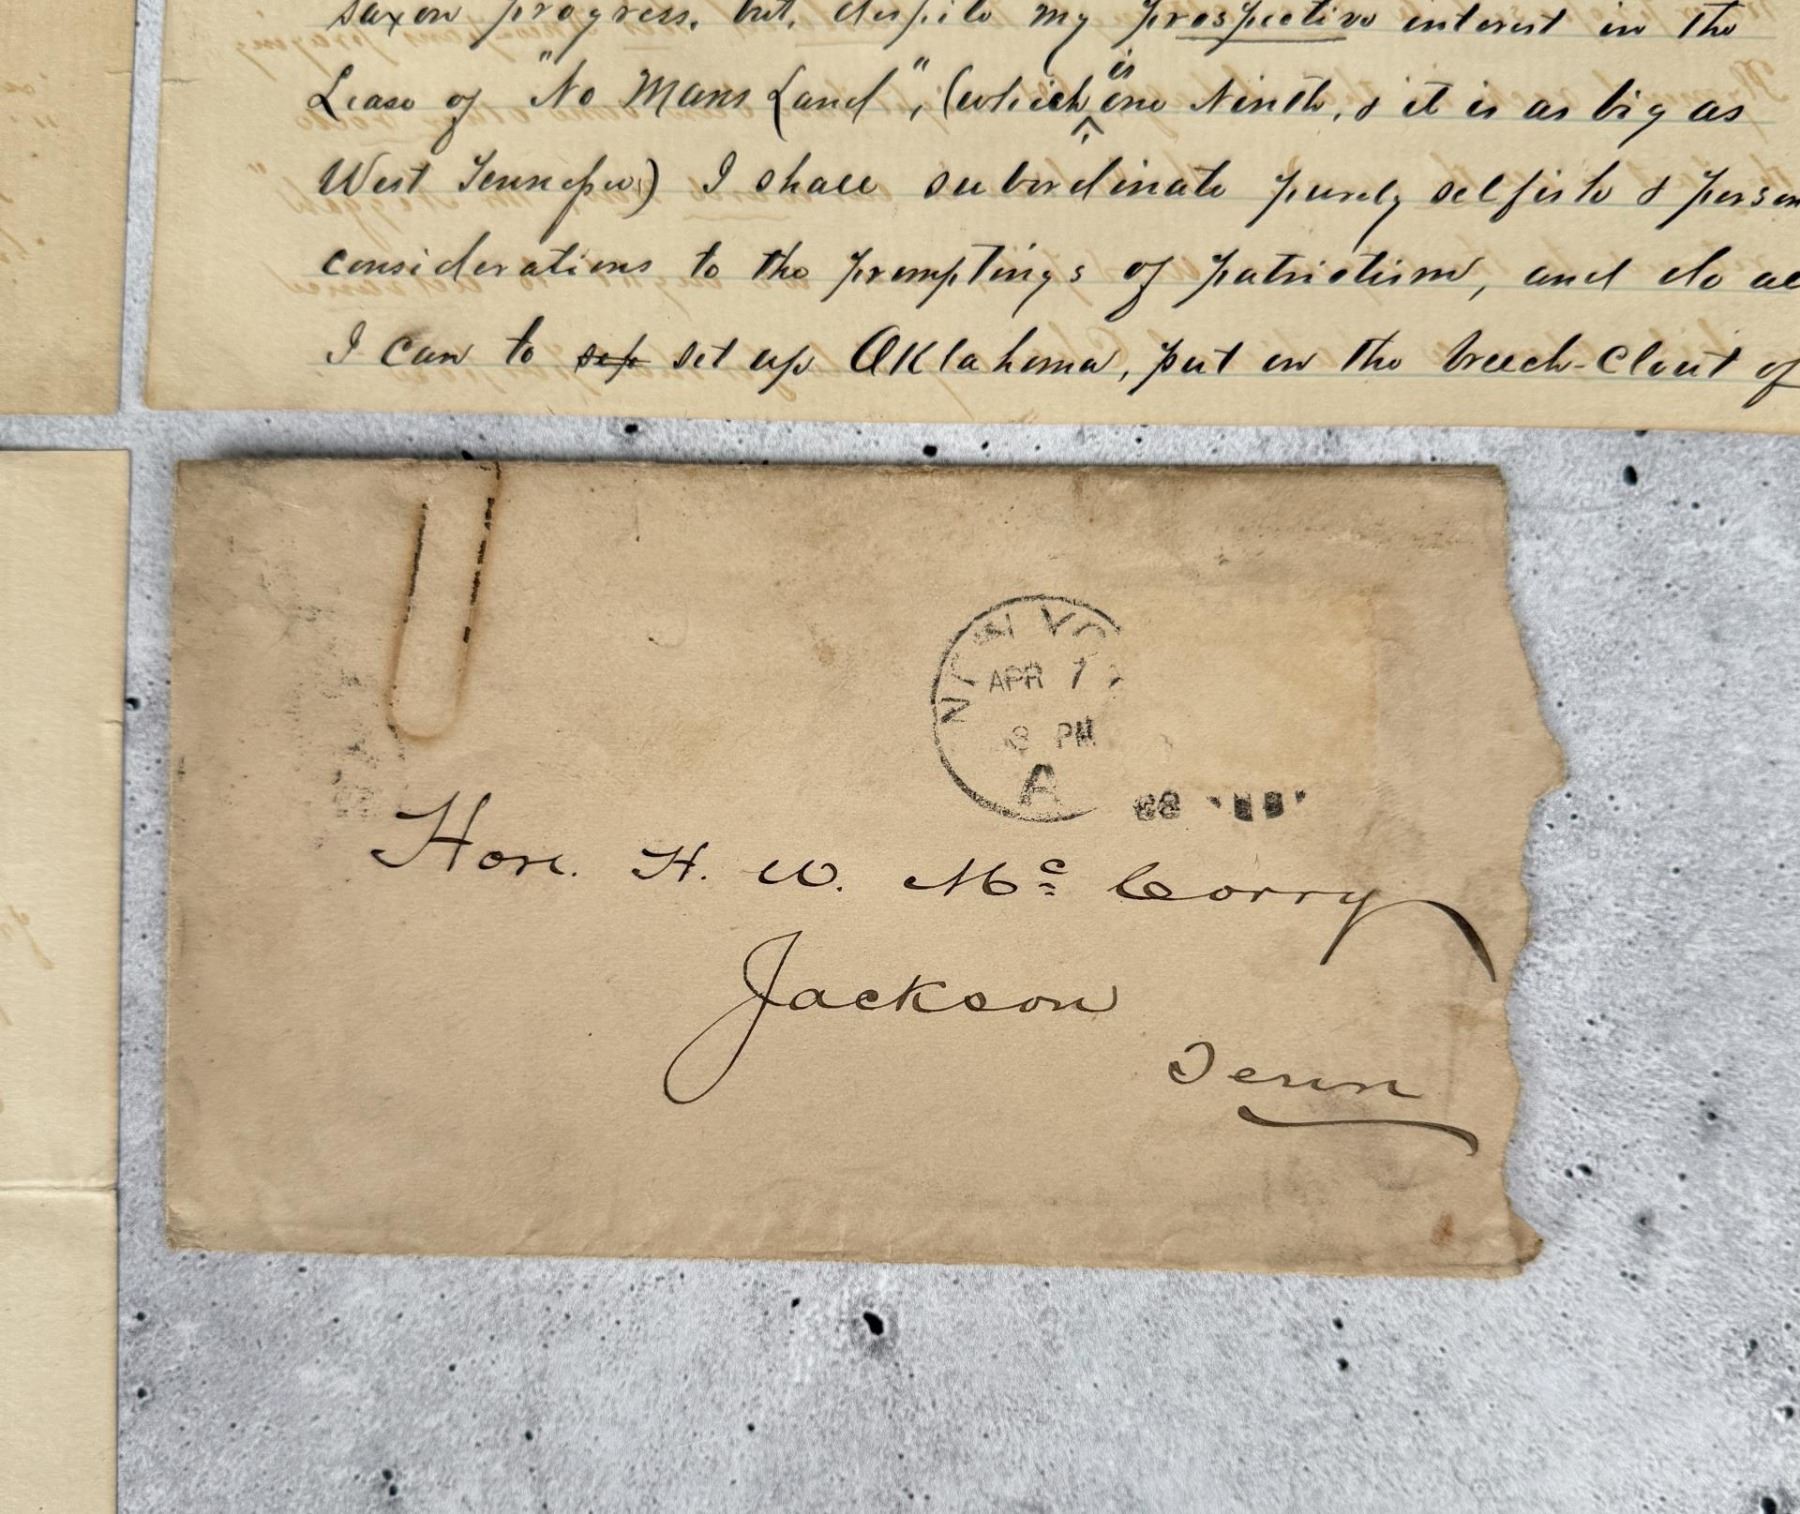 saxon progress. but, despite my prospective interest in the
Lease of "No Mans Land", (which is one Ninth, & it is as big as
West Tennessee) I shall subordinate purely selfish & person
considerations to the promptings of patriotism, and do al
I can to sep set up Oklahoma, put on the breech-clout of
NEW YO
APR 1
3 PM
A
88
Hon. H. W. Mc Corry
Jackson
Tenn